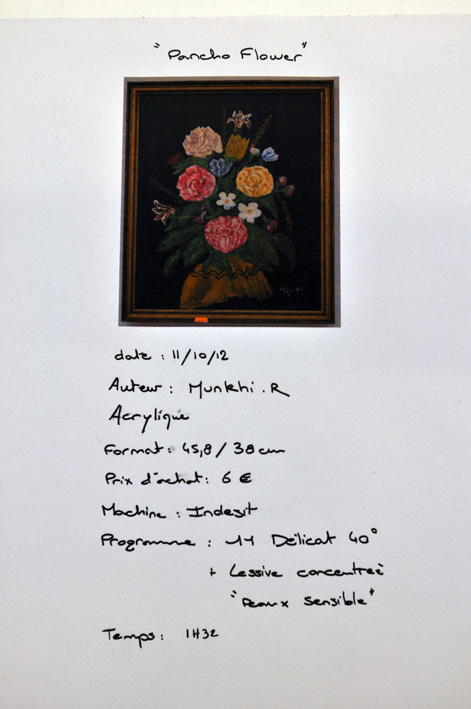 "Pancho Flower"
date : 11/10/12
Auteur : Munkhi.R
Acrylique
Format : 45,8 / 38 cm
Prix d'achat : 6 €
Machine : Indesit
Programme : 11 Délicat 40°
+ Lessive concentreé
"Peaux Sensible"
Temps : 1H32